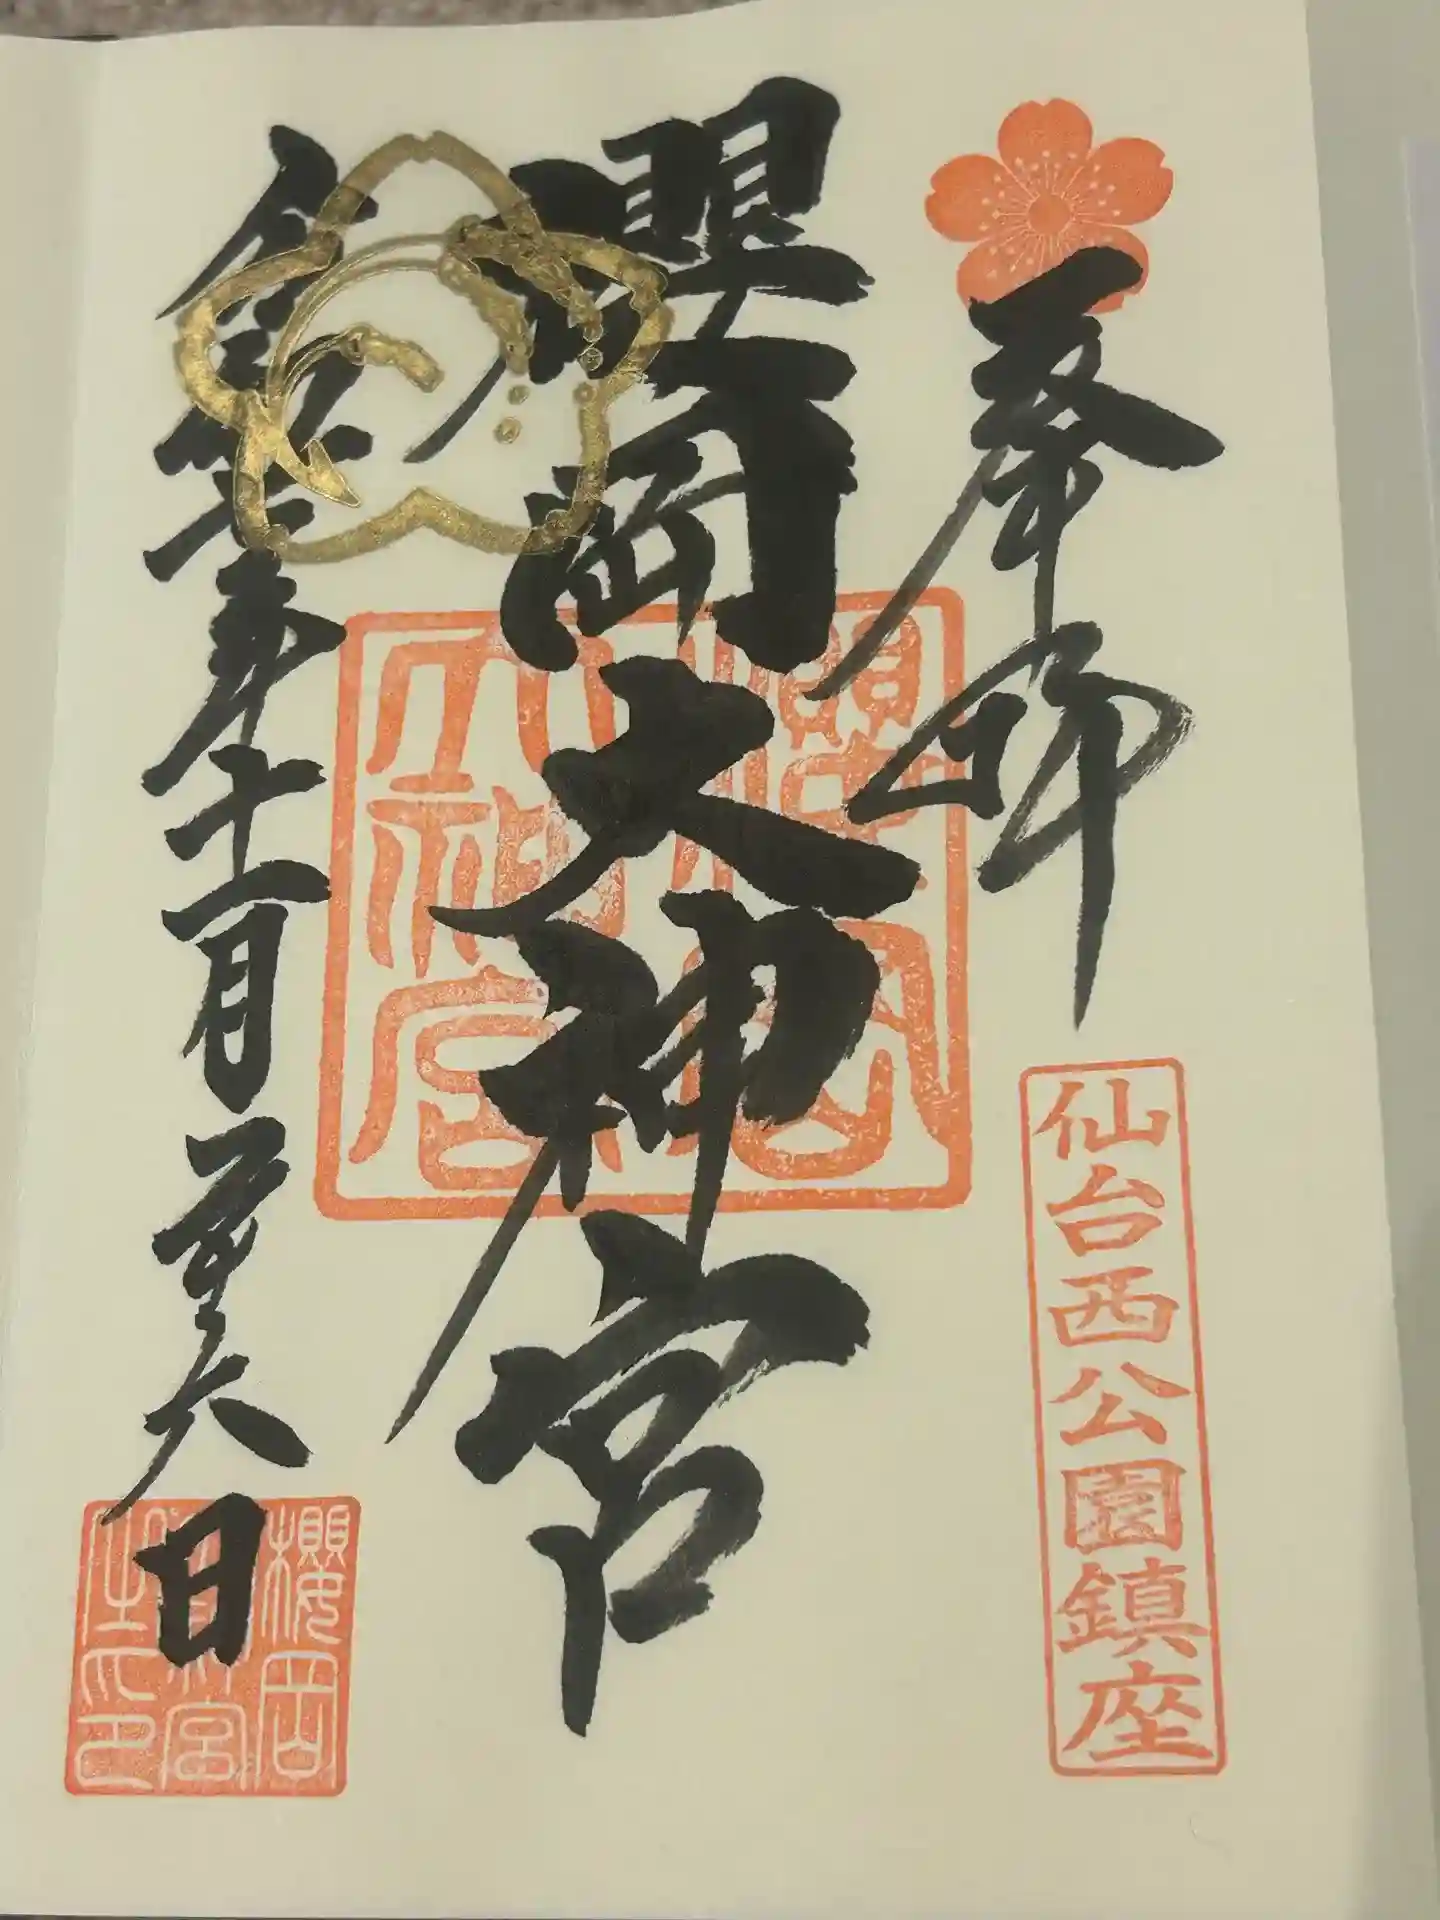 奉拝
仙台西公園鎮座
櫻岡大神宮
櫻岡
大神宮
令和 年十一月 六日
櫻岡